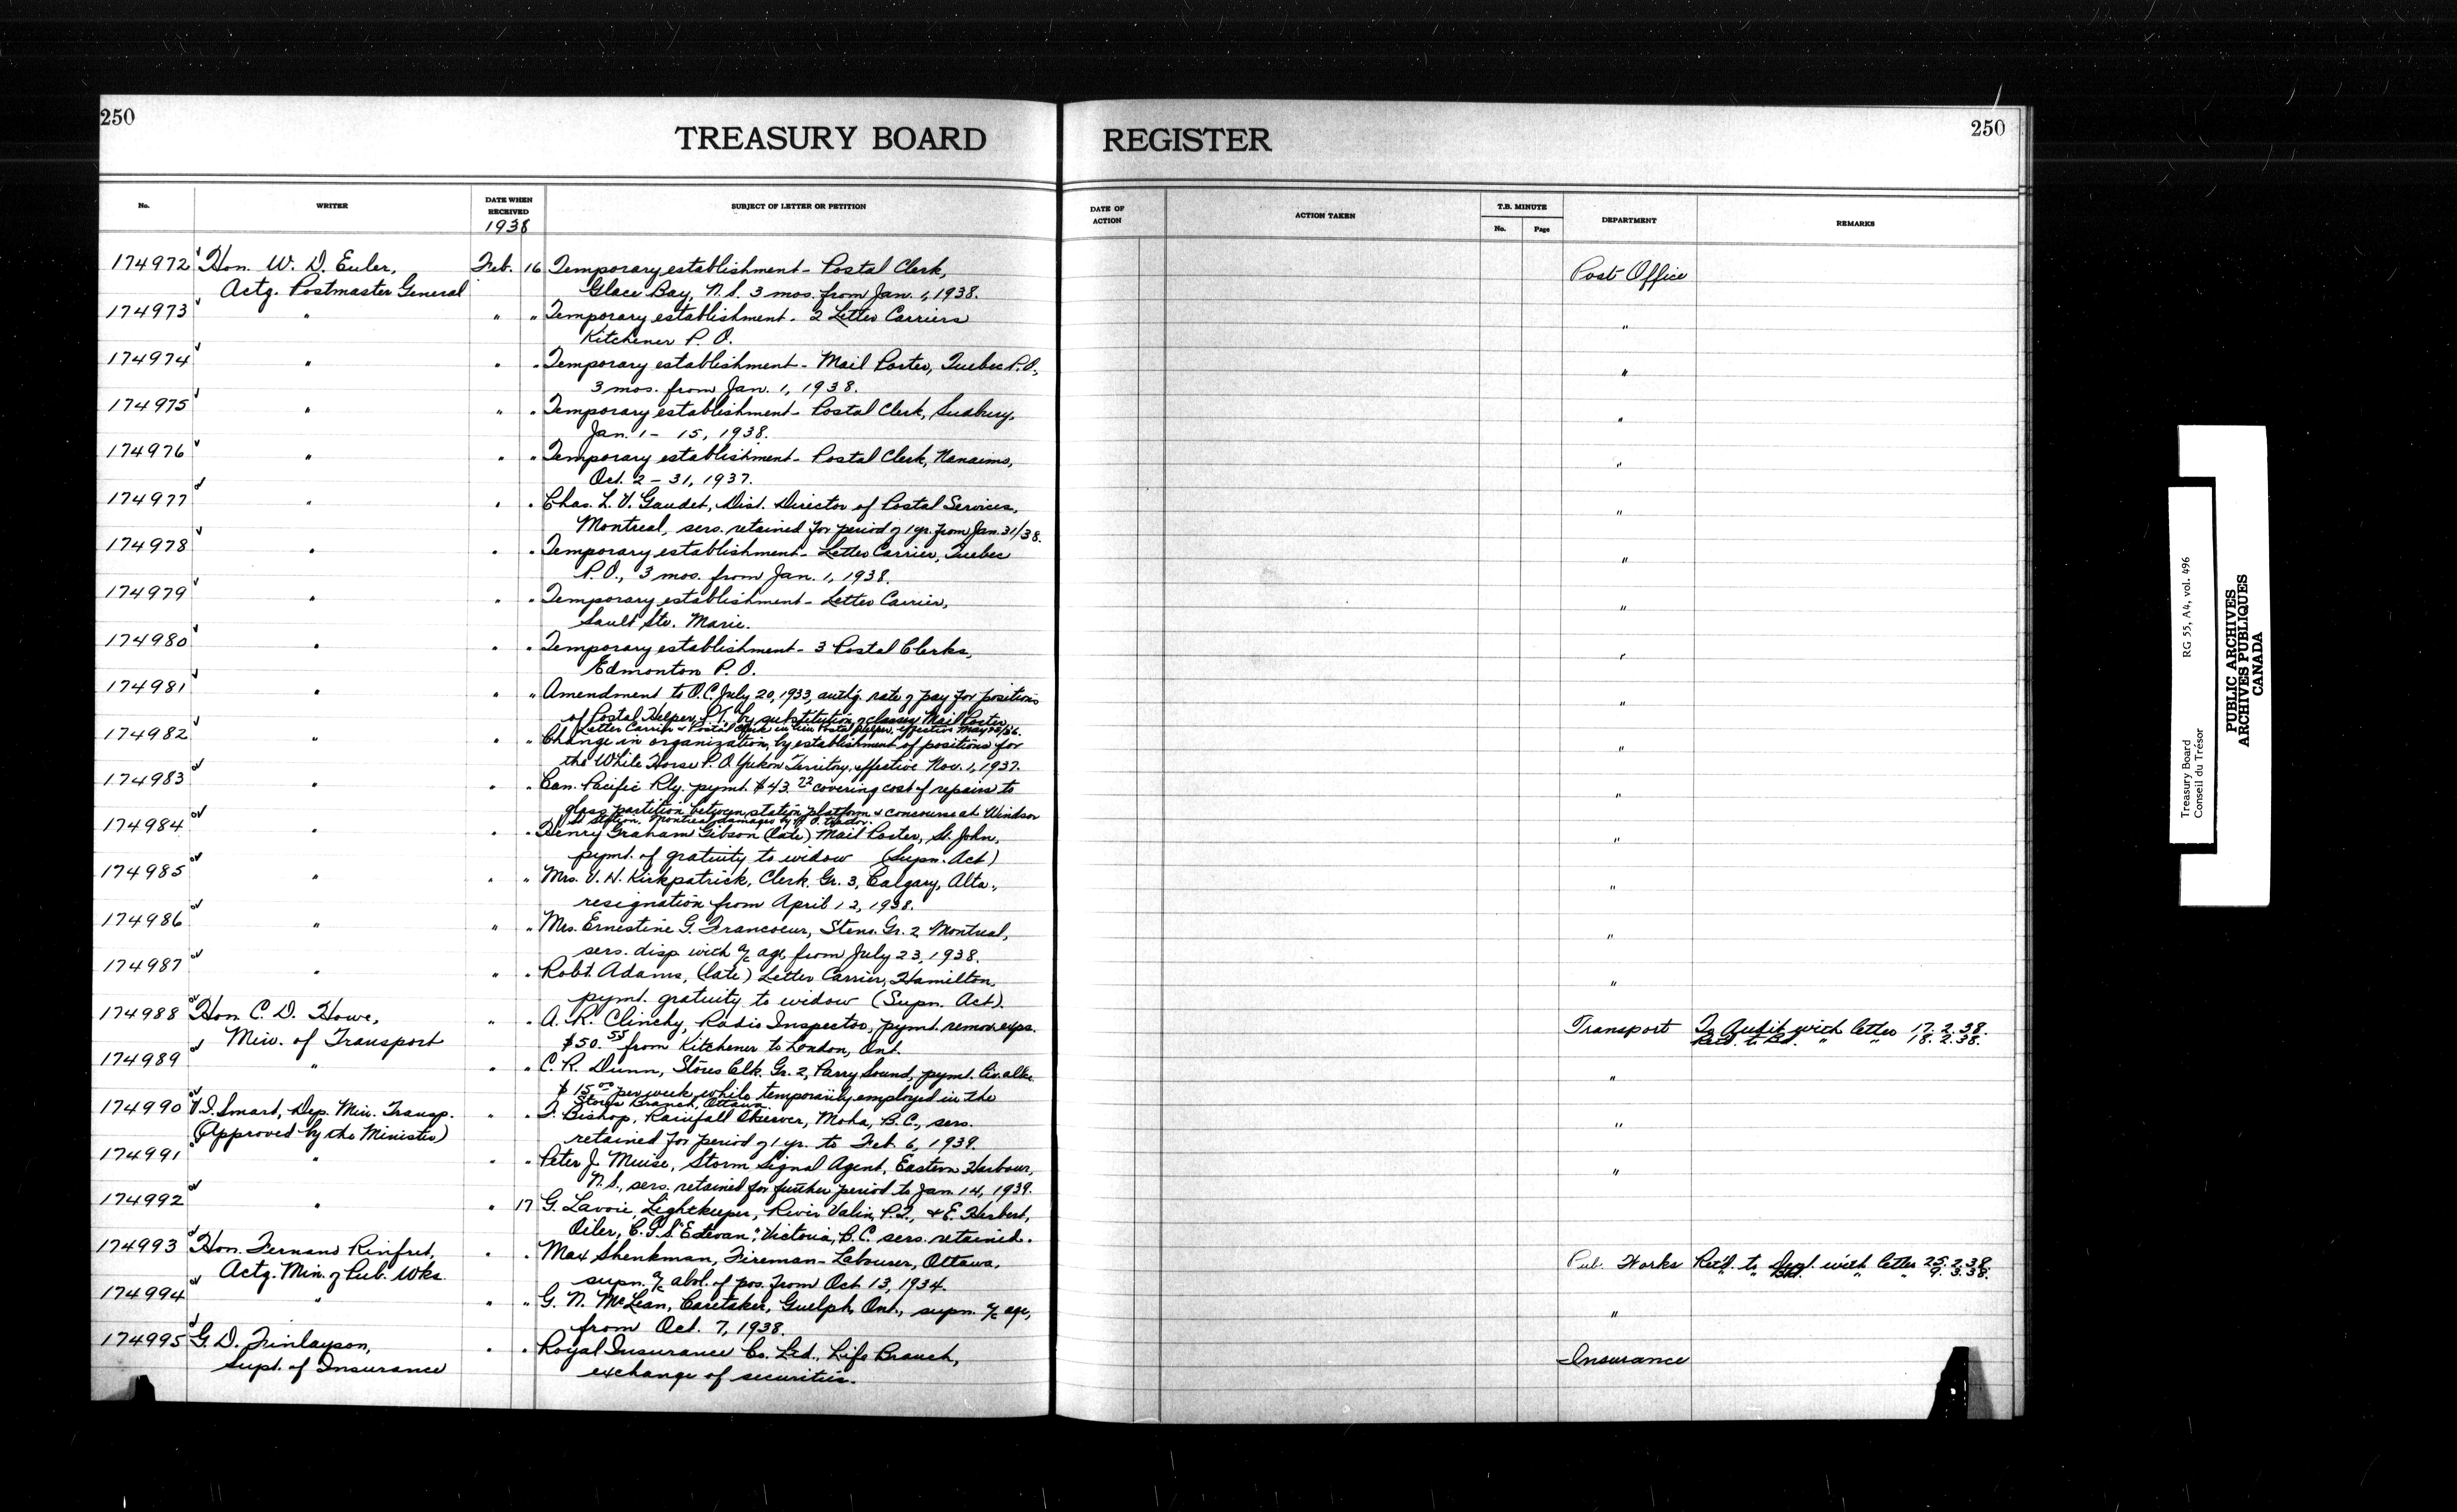 250
TREASURY BOARD REGISTER
250
No. WRITER DATE WHEN RECEIVED SUBJECT OF LETTER OR PETITION DATE OF ACTION ACTION TAKEN T.B. MINUTE No. Page DEPARTMENT REMARKS
1938
174972 Hon. W. D. Euler, Feb. 16 Temporary establishment - Postal Clerk, Post Office
Actg. Postmaster General Glace Bay, N.S. 3 mos. from Jan. 1, 1938.
174973 " " " Temporary establishment - 2 Letter Carriers "
Kitchener P. O.
174974 " " " Temporary establishment - Mail Porter, Quebec P.O., "
3 mos. from Jan. 1, 1938.
174975 " " " Temporary establishment - Postal Clerk, Sudbury, "
Jan. 1 - 15, 1938.
174976 " " " Temporary establishment - Postal Clerk, Nanaimo, "
Oct. 2 - 31, 1937.
174977 " " " Chas. L. V. Gaudet, Dist. Director of Postal Services, "
Montreal, sers. retained for period of 1 yr. from Jan. 31/38.
174978 " " " Temporary establishment - Letter Carrier, Quebec "
P.O., 3 mos. from Jan. 1, 1938.
174979 " " " Temporary establishment - Letter Carrier, "
Sault Ste. Marie.
174980 " " " Temporary establishment - 3 Postal Clerks, "
Edmonton P. O.
174981 " " " Amendment to O.C. July 20, 1933, authg. rate of pay for positions "
of Postal Helper, P.T. by substitution of classes Mail Porter,
Letter Carrier & Postal Clerk in lieu Postal Helper, effective May
174982 " " " Change in organization, by establishment of positions for "
the White Horse P. O. Yukon Territory, effective Nov. 1, 1937.
174983 " " " Can. Pacific Rly. pymt. $43.72 covering cost of repairs to "
glass partition between station platform & concourse at Windsor
St. Station, Montreal damaged by P. O.
174984 " " " Henry Graham Gibson (late) Mail Porter, St. John, "
pymt. of gratuity to widow (Supn. Act)
174985 " " " Mrs. V. H. Kirkpatrick, Clerk, Gr. 3, Calgary, Alta., "
resignation from April 12, 1938.
174986 " " " Mrs. Ernestine G. Francoeur, Steno. Gr. 2 Montreal, "
sers. disp. with a/c age, from July 23, 1938.
174987 " " " Robt. Adams, (late) Letter Carrier, Hamilton, "
pymt. gratuity to widow (Supn. Act).
174988 Hon. C. D. Howe, " " A. R. Clinchy, Radio Inspector, pymt. remov. exps. Transport To Audit with letter 17.2.38.
Min. of Transport $50.55 from Kitchener to London, Ont. Retd. to Bd. " " 18.2.38.
174989 " " " C. R. Dunn, Stores Clk. Gr. 2, Parry Sound, pymt. liv. allce. "
$15.00 per week while temporarily employed in the
Stores Branch, Ottawa.
174990 V. I. Smart, Dep. Min. Transp. " " T. Bishop, Rainfall Observer, Moha, B.C., sers. "
(Approved by the Minister) retained for period of 1 yr. to Feb. 6, 1939.
174991 " " " Peter J. Muise, Storm Signal Agent, Eastern Harbour, "
N.S., sers. retained for further period to Jan. 14, 1939.
174992 " " 17 G. Lavoie, Lightkeeper, Revir Valin, P.Q., & E. Herbert,
Oiler, C.G.S. "Estevan", Victoria, B.C. sers. retained.
174993 Hon. Fernand Rinfret, " " Max Shenkman, Fireman-Labourer, Ottawa, Pub. Works Ret'd. to Dept. with letter 25.2.38.
Actg. Min. of Pub. Wks. supn. a/c abol. of pos. from Oct. 13, 1934. " " Bd. " " 9.3.38.
174994 " " " G. N. McLean, Caretaker, Guelph, Ont., supn. a/c age, "
from Oct. 7, 1938.
174995 G. D. Finlayson, " " Royal Insurance Co. Ltd., Life Branch, Insurance
Supt. of Insurance exchange of securities.
Treasury Board RG 55, A4, vol. 496
Conseil du Trésor
PUBLIC ARCHIVES
ARCHIVES PUBLIQUES
CANADA